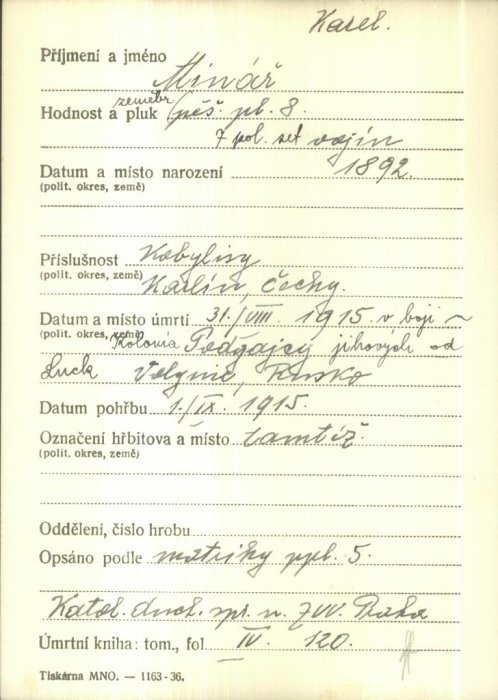 Karel.
Příjmení a jméno Minář
Hodnost a pluk zeměbr. pěš. pl. 8.
7 pol. set. vojín
Datum a místo narození 1892.
(polit. okres, země)
Příslušnost Kobylisy
(polit. okres, země) Karlín, Čechy.
Datum a místo úmrtí 31./VIII. 1915 v boji
(polit. okres, země) Kolonia Podgajcy jihových. od
Luck Volynie, Rusko
Datum pohřbu 1./IX. 1915.
Označení hřbitova a místo tamtéž.
(polit. okres, země)
Oddělení, číslo hrobu
Opsáno podle matriky ppl. 5.
Katol. duch. spr. n. ZVV. Praha
Úmrtní kniha: tom., fol IV. 120.
Tiskárna MNO. — 1163-36.